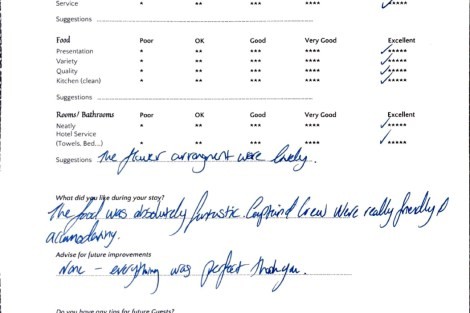 Service *****
Suggestions
Food Poor OK Good Very Good Excellent
Presentation * ** *** **** *****
Variety * ** *** **** *****
Quality * ** *** **** *****
Kitchen (clean) * ** *** **** *****
Suggestions
Rooms/Bathrooms Poor OK Good Very Good Excellent
Neatly * ** *** **** *****
Hotel Service
(Towels, Bed...) * ** *** **** *****
Suggestions The flower arrangment were lovely.
What did you like during your stay?
The food was absolutely funtastic. Captain & Crew were really friendly &
accomodating.
Advise for future improvements
None - everything was perfect thank you.
Do you have any tips for future Guests?